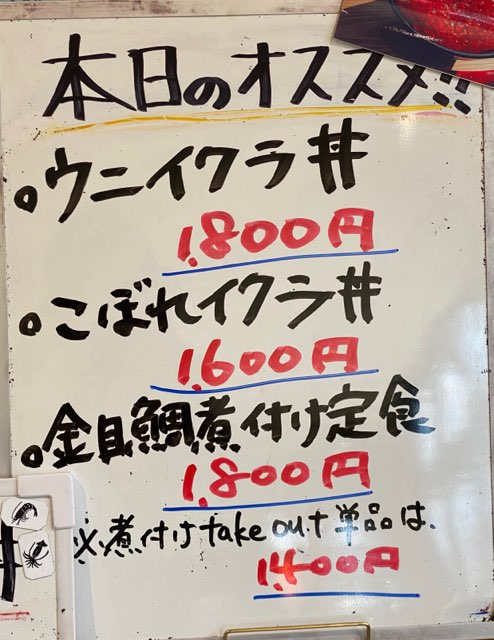 本日のオススメ!!
。ウニイクラ丼
1,800円
。こぼれイクラ丼
1,600円
。金目鯛煮付け定食
1,800円
※煮付けtake out単品は、
1,400円